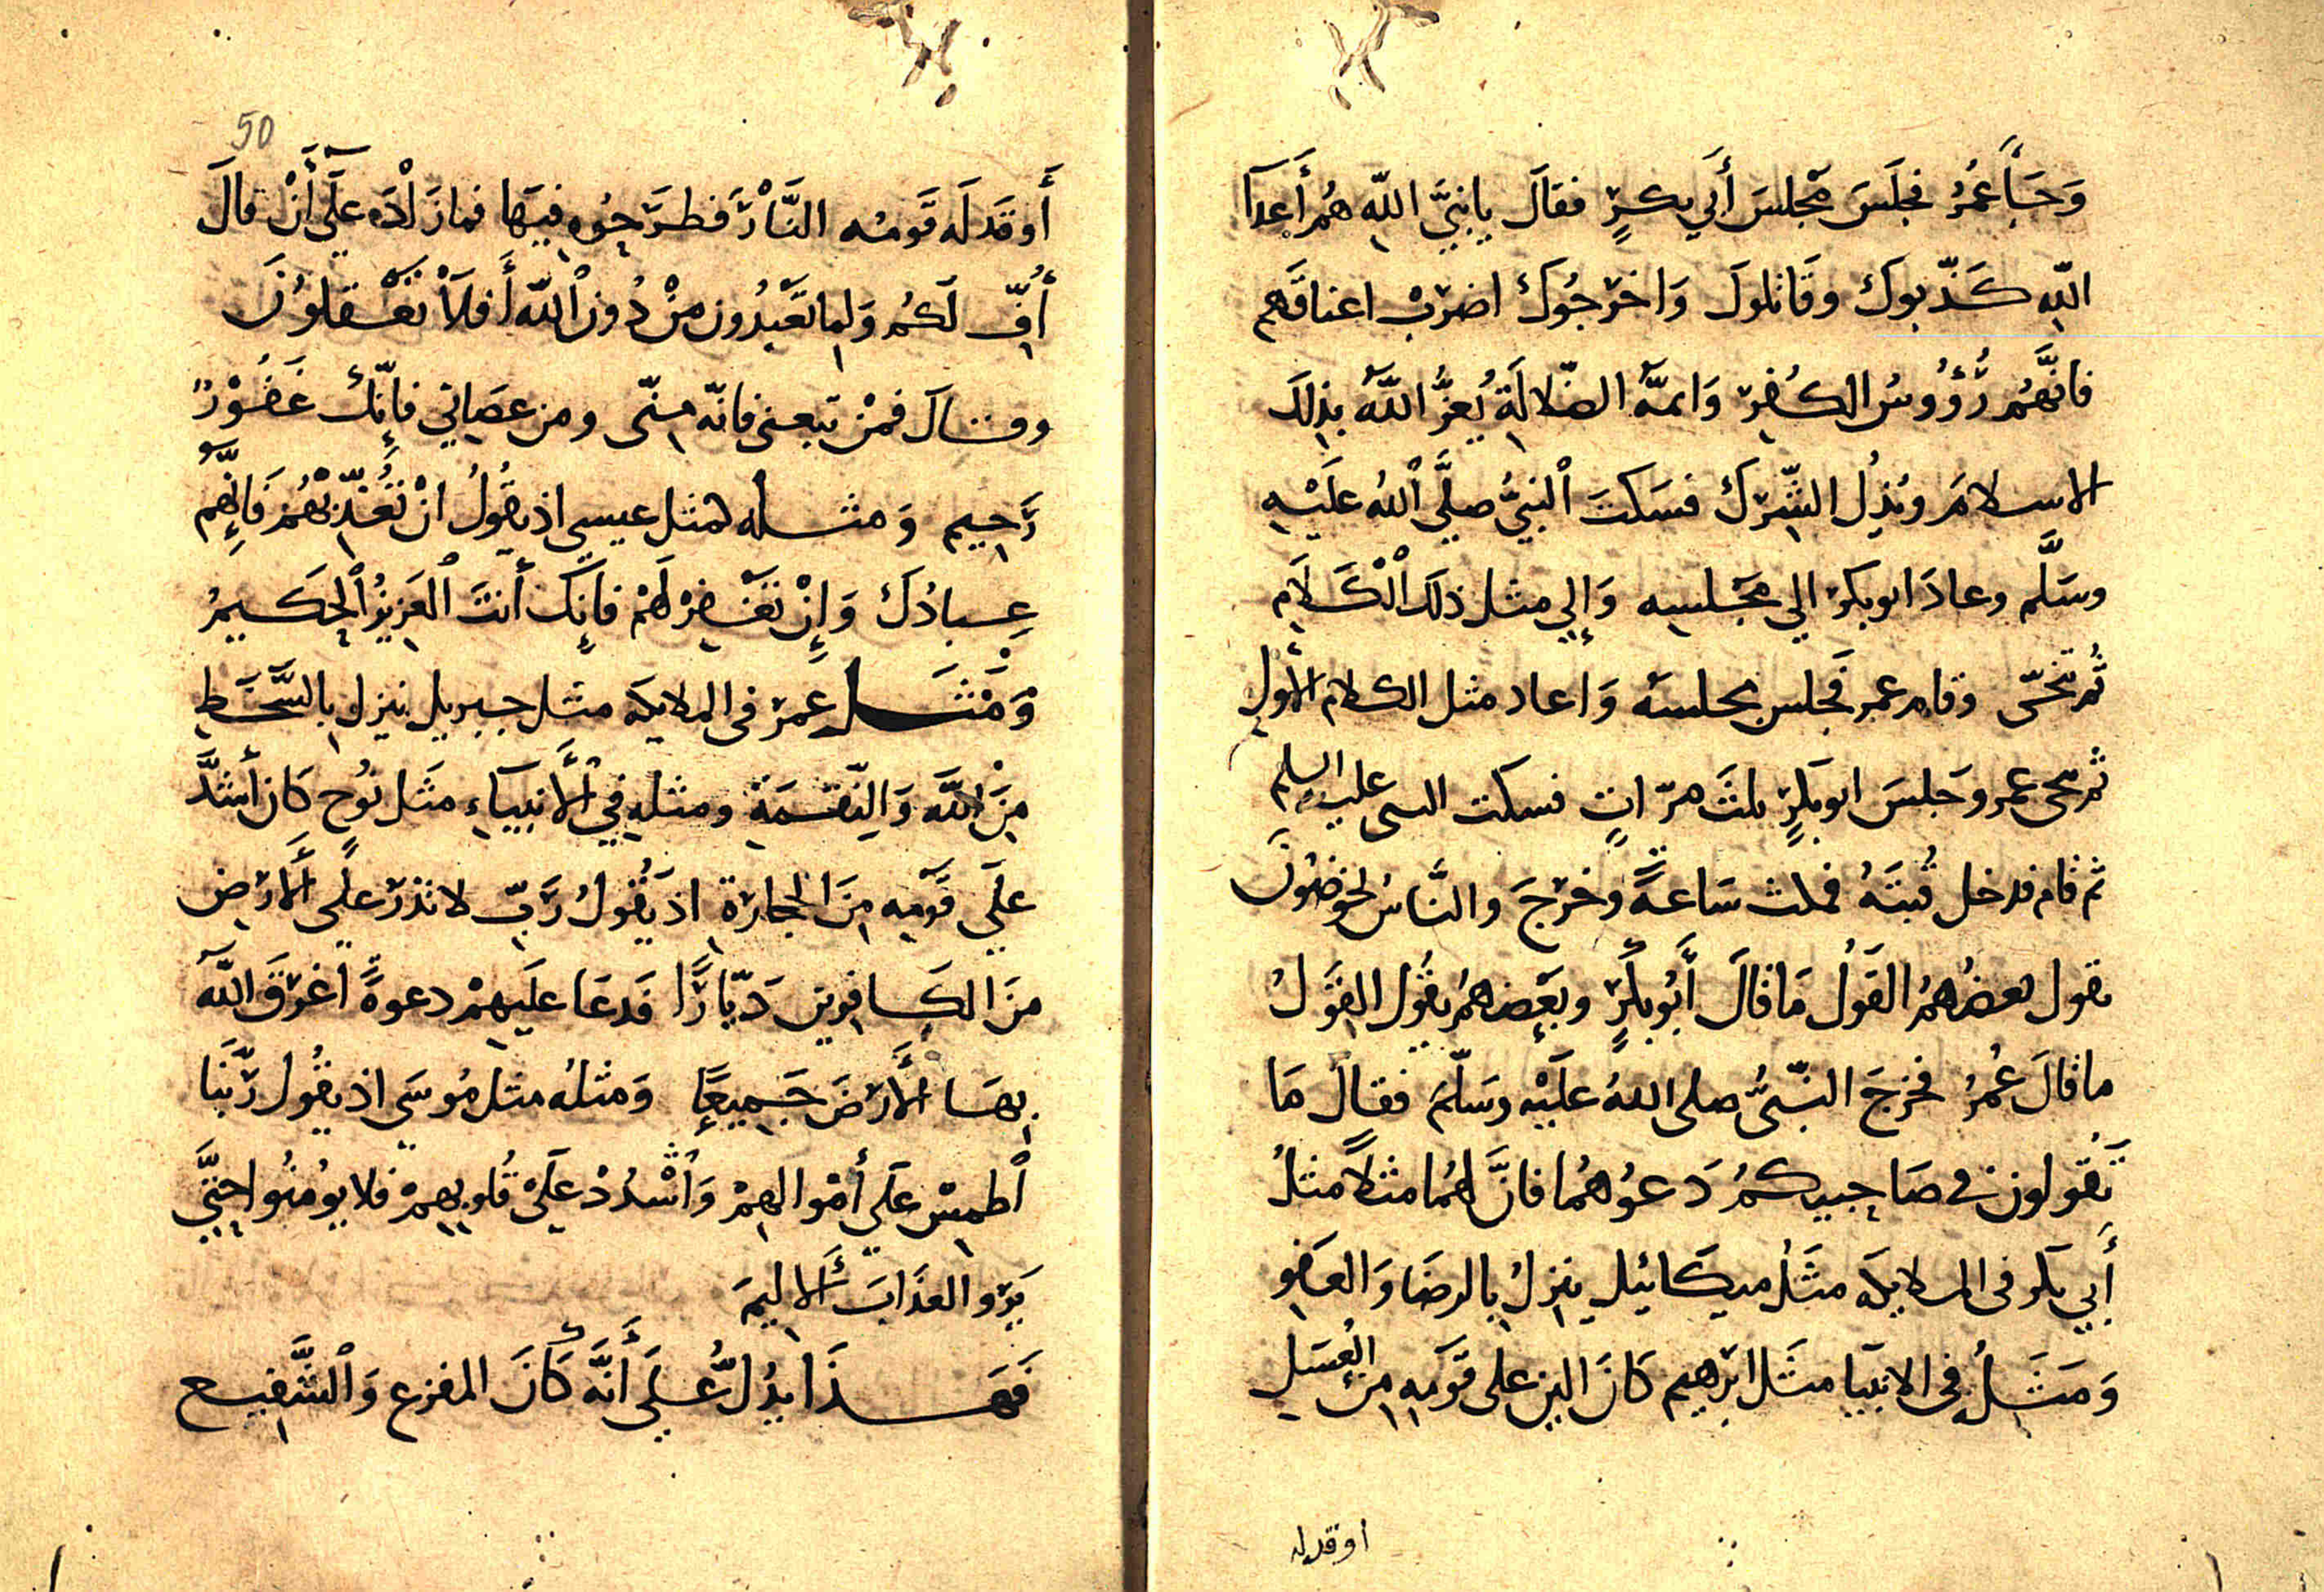 وَجَآءَ عُمَرُ فجلَسَ مَجْلسَ أَبي بكرٍ فقالَ يا نبيَّ اللهِ هُم أَعدَآ
اللهِ كَذّبوكَ وقَاتلوكَ وَاخرَجُوكَ اضربْ اعناقَهم
فانَّهُم رُؤُوسُ الكُفرِ وَائمَّة الضّلالَةِ يُعزُّ اللهُ بذلِكَ
الاسلامَ ويُذِل الشِّرْكَ فسَكتَ النبيُّ صلَّى اللهُ عَليْهِ
وسَلَّم وعادَ ابو بكر الي مَجْلسِه وَإِلي مثل ذلكَ الْكَلَامِ
ثُم تنحّى وقام عمر فَجلس مجلسَه وَاعاد مثل الكلام الأولِ
ثم تنحى عمر وجَلسَ ابو بكرٍ ثلثَ مرّاتٍ فسكت النبى عليه السلم
ثم قام فدخل قُبتَهُ فمكث سَاعةً وخرَجَ والنَّاسُ يخوضُونَ
يقول بعضُهمُ القَوْلُ مَا قالَ أَبُو بكرٍ وبَعضهمُ يقُول القَوْلُ
ما قالَ عُمَرُ فخرجَ النّبيُّ صلى اللهُ عَليْهِ وسَلّمَ فقالَ مَا
تَقُولون في صَاحِبيكمُ دَعوُهُما فانَّ لهُما مثلاً مثلُ
أَبي بكر في الملايكه مثَلُ ميكَائيل ينزلُ بالرضَا وَالعَفو
وَمَثَلُه في الانبيَا مثَل ابرَهيم كَانَ الين على قَومِه مِنَ العَسَلِ
اوقد له
50
أَوقَدَ لَه قَومُه النَّارَ فطرَحُوه فيهَا فما زَادَه عَلَى أَنْ قالَ
أُفٍّ لَكُم وَلِما تَعْبدُون مِنْ دُونِ اللهِ أَفَلَا تَعْقلُونَ
وقالَ فمنْ تَبعنى فانّه منّى ومن عصَاني فإِنّكَ غَفُورٌ
رَحِيم وَمثله كمثل عيسى اذ يقُولُ انْ تُعَذّبهُم فَإِنَّهُم
عِبادُكَ وَإِنْ تَغْفِرْ لَهُمْ فإنَكَ أَنتَ العَزيزُ الحَكيمُ
وَمَثَل عمرَ في الملايكه مثل جبريل ينزل بالسَّخَطِ
مِنَ اللهِ وَالنِّقمَةِ ومثله فِي الْأَنبيَاءِ مَثَل نُوحٍ كَان أَشدَّ
عَلَى قَومِه مِنَ الحجارَةِ اذ يَقُولُ رَبِّ لا تذَرْ عَلَى الأَرْضِ
منَ الكَافرين دَيّارًا فَدعَا عليهِمْ دعوةً اغرَقَ اللهُ
بهَا الأَرْضَ جَميعًا وَمثلُه مثل مُوسَى اذ يقُول رَبَّنَا
اطمِسْ عَلَى أَمْوالهِمْ وَاشْدُدْ عَلَى قُلوبهِمْ فلا يُومنُوا حتَّى
يَرَوُا العَذَابَ الأَليمَ
فَهذَا يدُلُّ عَلَى أَنَّهُ كَانَ المفزع وَالشَّفيع